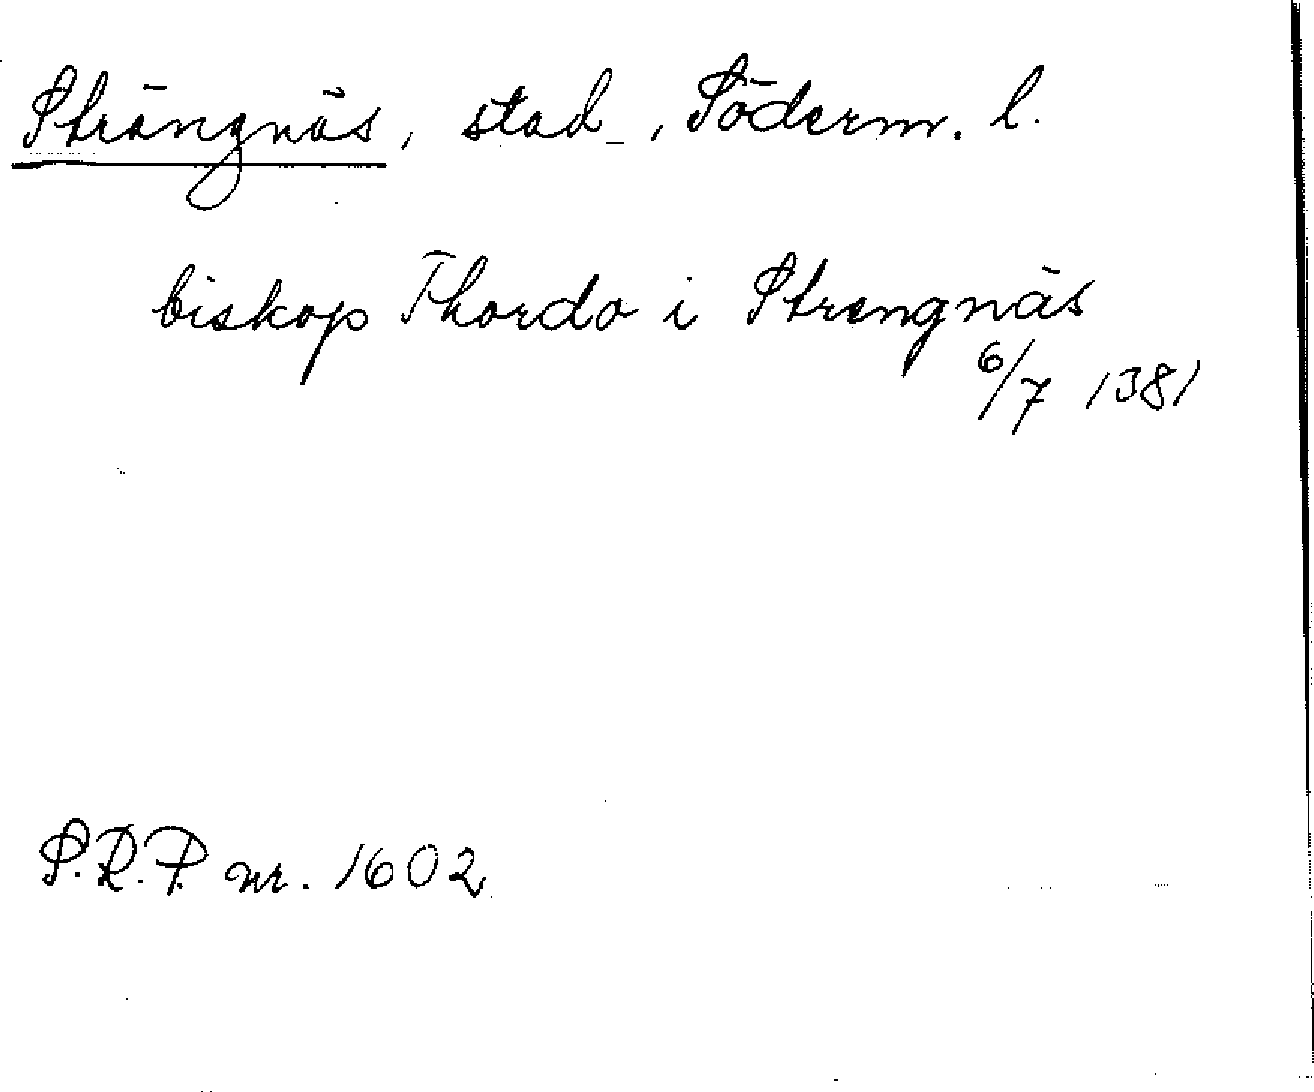 Strängnäs, stad, Söderm. l.
biskop Thordo i Strengnäs
6/7 1381
S.R.P. nr. 1602